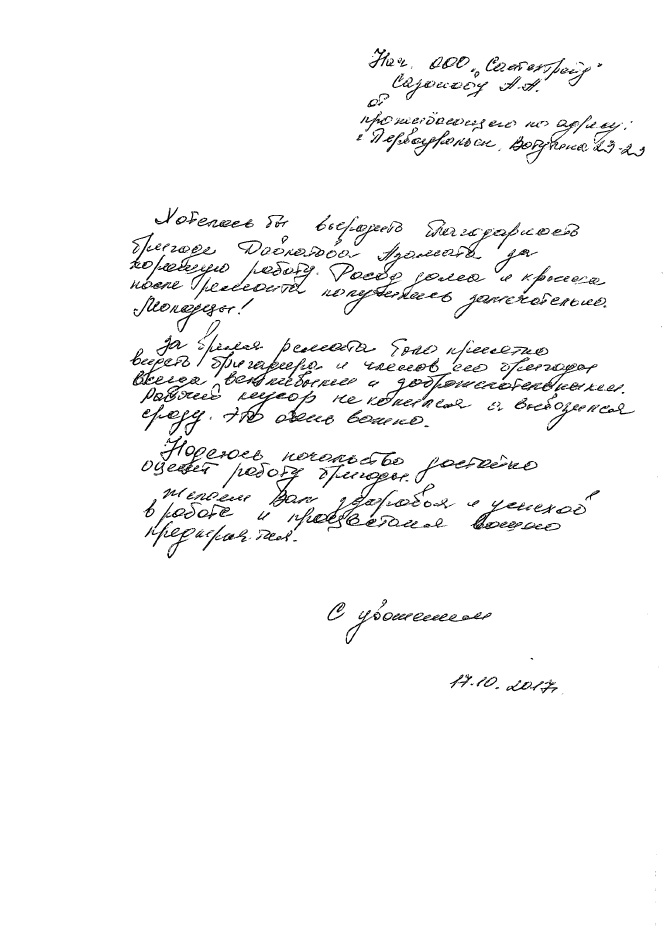 Нач. ООО „Састейтрейд"
Сазонову А.А.
от
проживающего по адресу:
г. Первоуральск, Ватутина 23-23
Хотелось бы выразить благодарность
бригаде Давлатова Азамата за
хорошую работу. Фасад дома и крыша
после ремонта получились замечательно.
Молодцы!
За время ремонта было приятно
видеть бригадира и членов его бригады
всегда вежливыми и доброжелательными.
Рабочий мусор не копился а вывозился
сразу. Это очень важно.
Надеюсь начальство достойно
оценит работу бригады.
Желаем Вам здоровья и успехов
в работе и процветания вашего
предприятия.
С уважением
17.10.2017г.